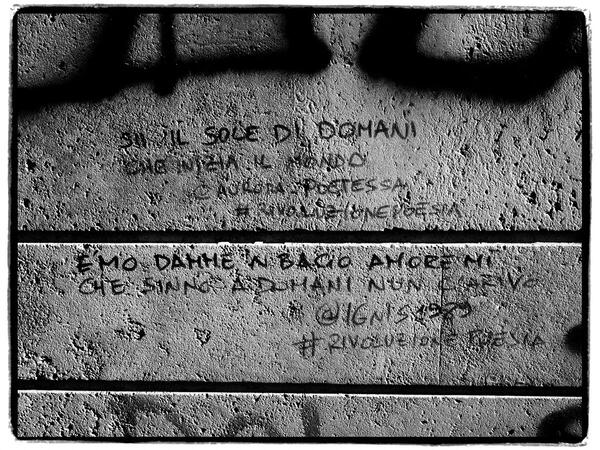 SII IL SOLE DI DOMANI
CHE INIZIA IL MONDO
L'AURORA POETESSA
#RIVOLUZIONEPOESIA
E'MO DAMME 'N BACIO AMORE MI
CHE SINNO A DOMANI NUN C'ARIVO
@IGNIS1989
#RIVOLUZIONEPOESIA